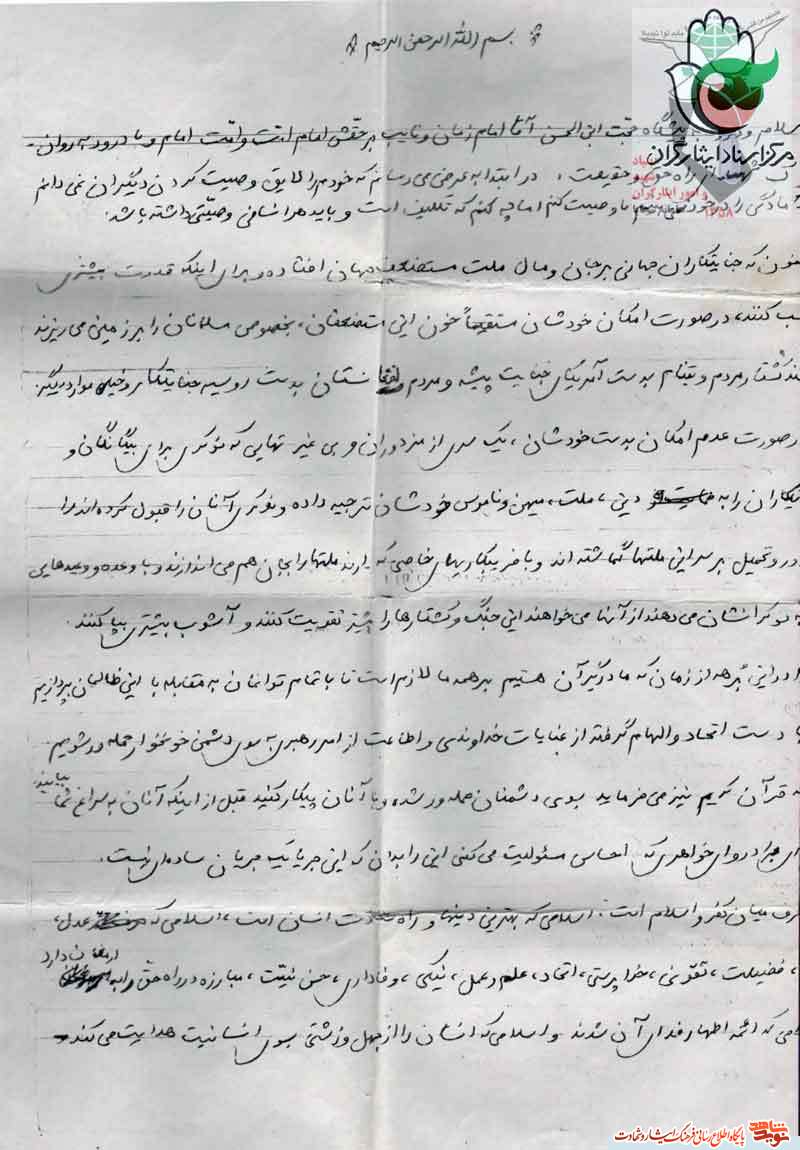 بسم الله الرحمن الرحیم
سلام و درود به پیشگاه حجت ابن الحسن آقا امام زمان و نایب بر حقش امام امت و امت امام و با درود به روان
شهداء راه حق و حقیقت، در ابتدا به عرض می رسانم که خودم را لایق وصیت کردن دیگران نمی دانم
آمادگی را در خود نمی بینم تا وصیت کنم اما چه کنم که تکلیف است و باید هر انسانی وصیتی داشته باشد.
که جنایتکاران جهانی بر جان و مال ملت مستضعف جهان افتاده و برای اینکه قدرت بیشتری
کسب کنند، در صورت امکان خودشان مستقیماً خون این مستضعفان، بخصوص مسلمانان را بر زمین می ریزند
مانند کشتار مردم ویتنام بدست آمریکای جنایت پیشه و مردم افغانستان بدست روسیه جنایتکار و خیلی موارد دیگر.
در صورت عدم امکان بدست خودشان، یک سری از مزدوران و بی غیرتهایی که نوکری برای بیگانگان و
را به دین، ملت، میهن و ناموس خودشان ترجیه داده و نوکری آنان را قبول کرده اند را
و تحمیل بر سر این ملتها گماشته اند و با فریبکاریهای خاصی که دارند ملتها را بجان هم می اندازند و با وعده و وعیدهایی
به نوکرانشان می دهند از آنها می خواهند این جنگ و کشتارها را بیشتر تقویت کنند و آشوب بیشتری بپا کنند.
در این برهه از زمان که ما درگیر آن هستیم بر همه ما لازم است تا با تمام توانمان به مقابله با این ظالمان بپردازیم
با دست اتحاد و الهام گرفته از عنایات خداوندی و اطاعت از امر رهبری به سوی دشمن خونخوار حمله ور شویم
قرآن کریم نیز می فرماید بسوی دشمنان حمله ور شده، و با آنان پیکار کنید قبل از اینکه آنان به سراغ شما بیایند
ای برادر و ای خواهری که احساس مسئولیت می کنی این را بدان که این جریان یک جریان ساده ای نیست.
میان کفر و اسلام است. اسلامی که بهترین دینها و راه سعادت انسان است، اسلامی که عدل،
فضیلت، تقوی، خدا پرستی، اتحاد، علم و عمل، نیکی، وفاداری، حسن نیت، مبارزه در راه حق را به ارمغان دارد
که ائمه اطهار فدای آن شدند و اسلامی که انسان را از جهل و زشتی بسوی انسانیت هدایت می کند
مرکز اسناد ایثارگران
و امور ایثارگران
۱۳۵۸
نوید شاهد
پایگاه اطلاع رسانی فرهنگ ایثار و شهادت